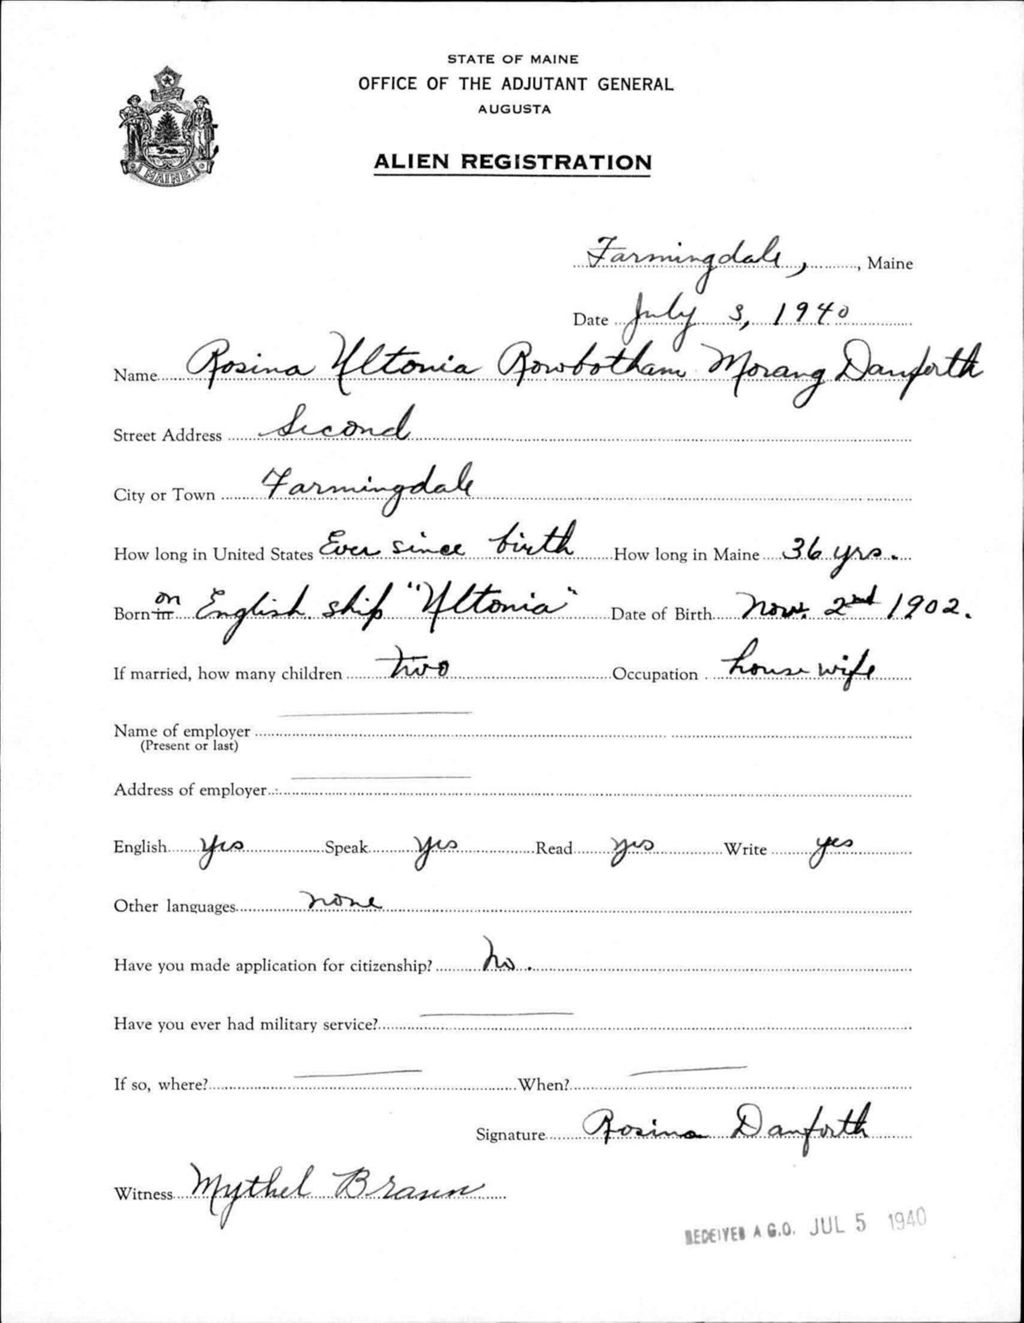 STATE OF MAINE
OFFICE OF THE ADJUTANT GENERAL
AUGUSTA
ALIEN REGISTRATION
MAINE
Farmingdale, , Maine
Date July 3, 1940
Name Rosina Ultonia Rowbotham Morang Danforth
Street Address Second
City or Town Farmingdale
How long in United States Ever since birth How long in Maine 36 yrs.
Born in on English ship "Ultonia" Date of Birth Nov. 2nd 1902.
If married, how many children two Occupation house wife
Name of employer
(Present or last)
Address of employer
English yes Speak yes Read yes Write yes
Other languages none
Have you made application for citizenship? No.
Have you ever had military service?
If so, where? When?
Signature Rosina Danforth
Witness Mythel Brann
RECEIVED A.G.O. JUL 5 1940